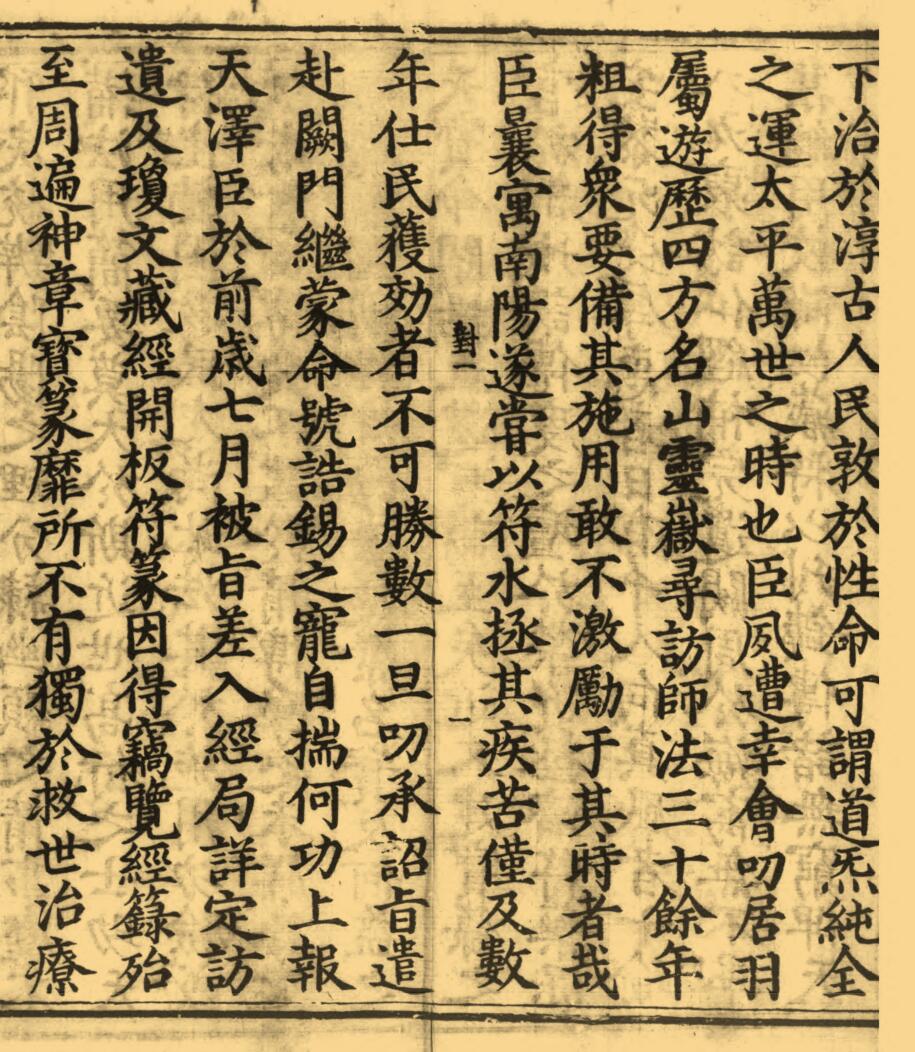 下洽於淳古人民敦於性命可謂道炁純全
之運太平萬世之時也臣夙遭幸會叨居羽
屬遊歷四方名山靈嶽尋訪師法三十餘年
粗得衆要備其施用敢不激勵于其時者哉
臣曩寓南陽遂嘗以符水拯其疾苦僅及數
對一
一
年仕民獲効者不可勝數一旦叨承詔旨遣
赴闕門繼蒙命號誥錫之寵自揣何功上報
天澤臣於前歲七月被旨差入經局詳定訪
遺及瓊文藏經開板符篆因得竊覽經籙殆
至周遍神章寶篆靡所不有獨於救世治療